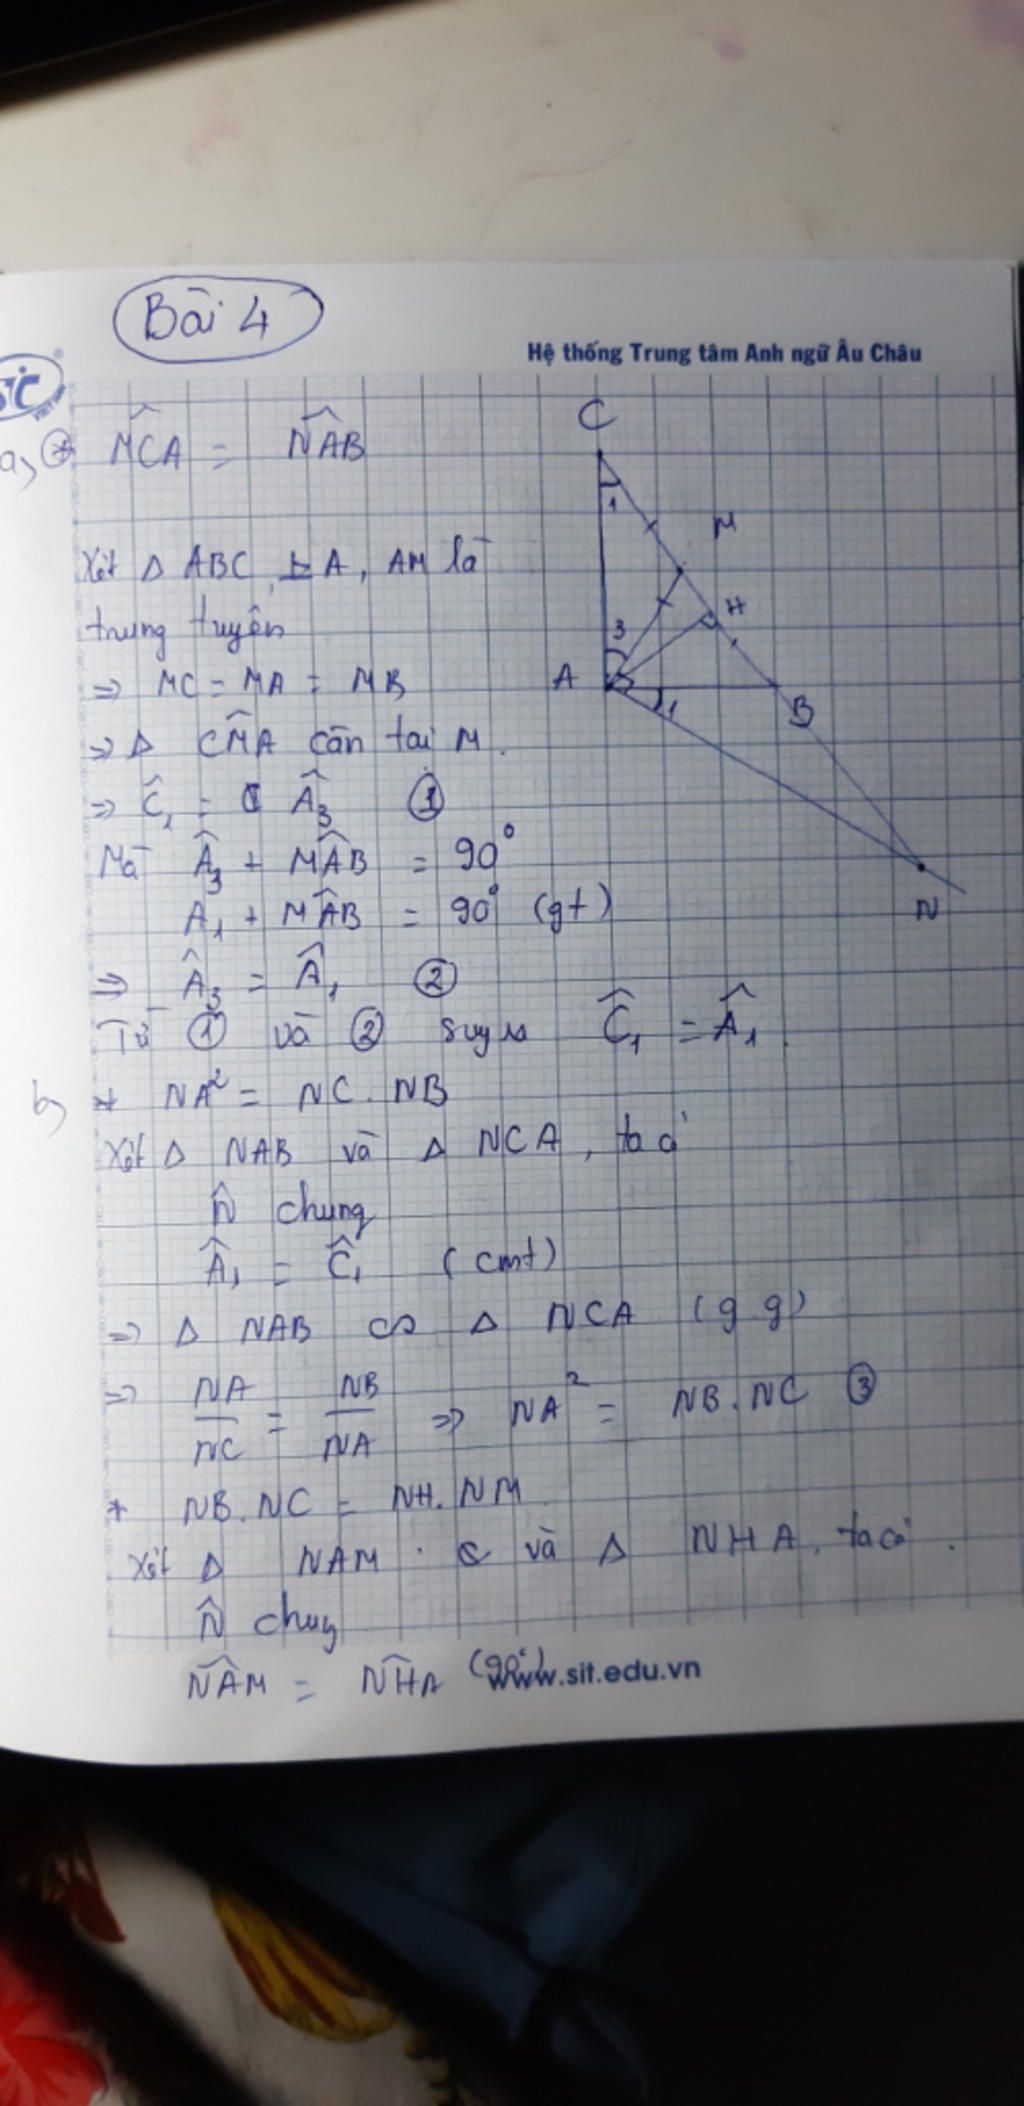 Bài 4
Hệ thống Trung tâm Anh ngữ Âu Châu
SIC
VIỆT
®
a, * MCA = NAB
C
1
M
H
3
A
1
B
N
Xét Δ ABC ⊥ A, AM là
trung tuyến
=> MC = MA = MB
=> Δ CMA cân tai M.
=> Ĉ₁ = Â₃ ①
Mà Â₃ + MÂB = 90°
A₁ + MÂB = 90° (gt)
=> Â₃ = Â₁ ②
Từ ① và ② suy ra Ĉ₁ = Â₁.
b, * NA² = NC . NB
Xét Δ NAB và Δ NCA, ta có
N̂ chung
Â₁ = Ĉ₁ (cmt)
=> Δ NAB ∽ Δ NCA (g.g)
=> NA/NC = NB/NA => NA² = NB . NC ③
* NB . NC = NH . NM
Xét Δ NAM và Δ NHA, ta có.
N̂ chung
NÂM = NĤA (90°)
www.sit.edu.vn